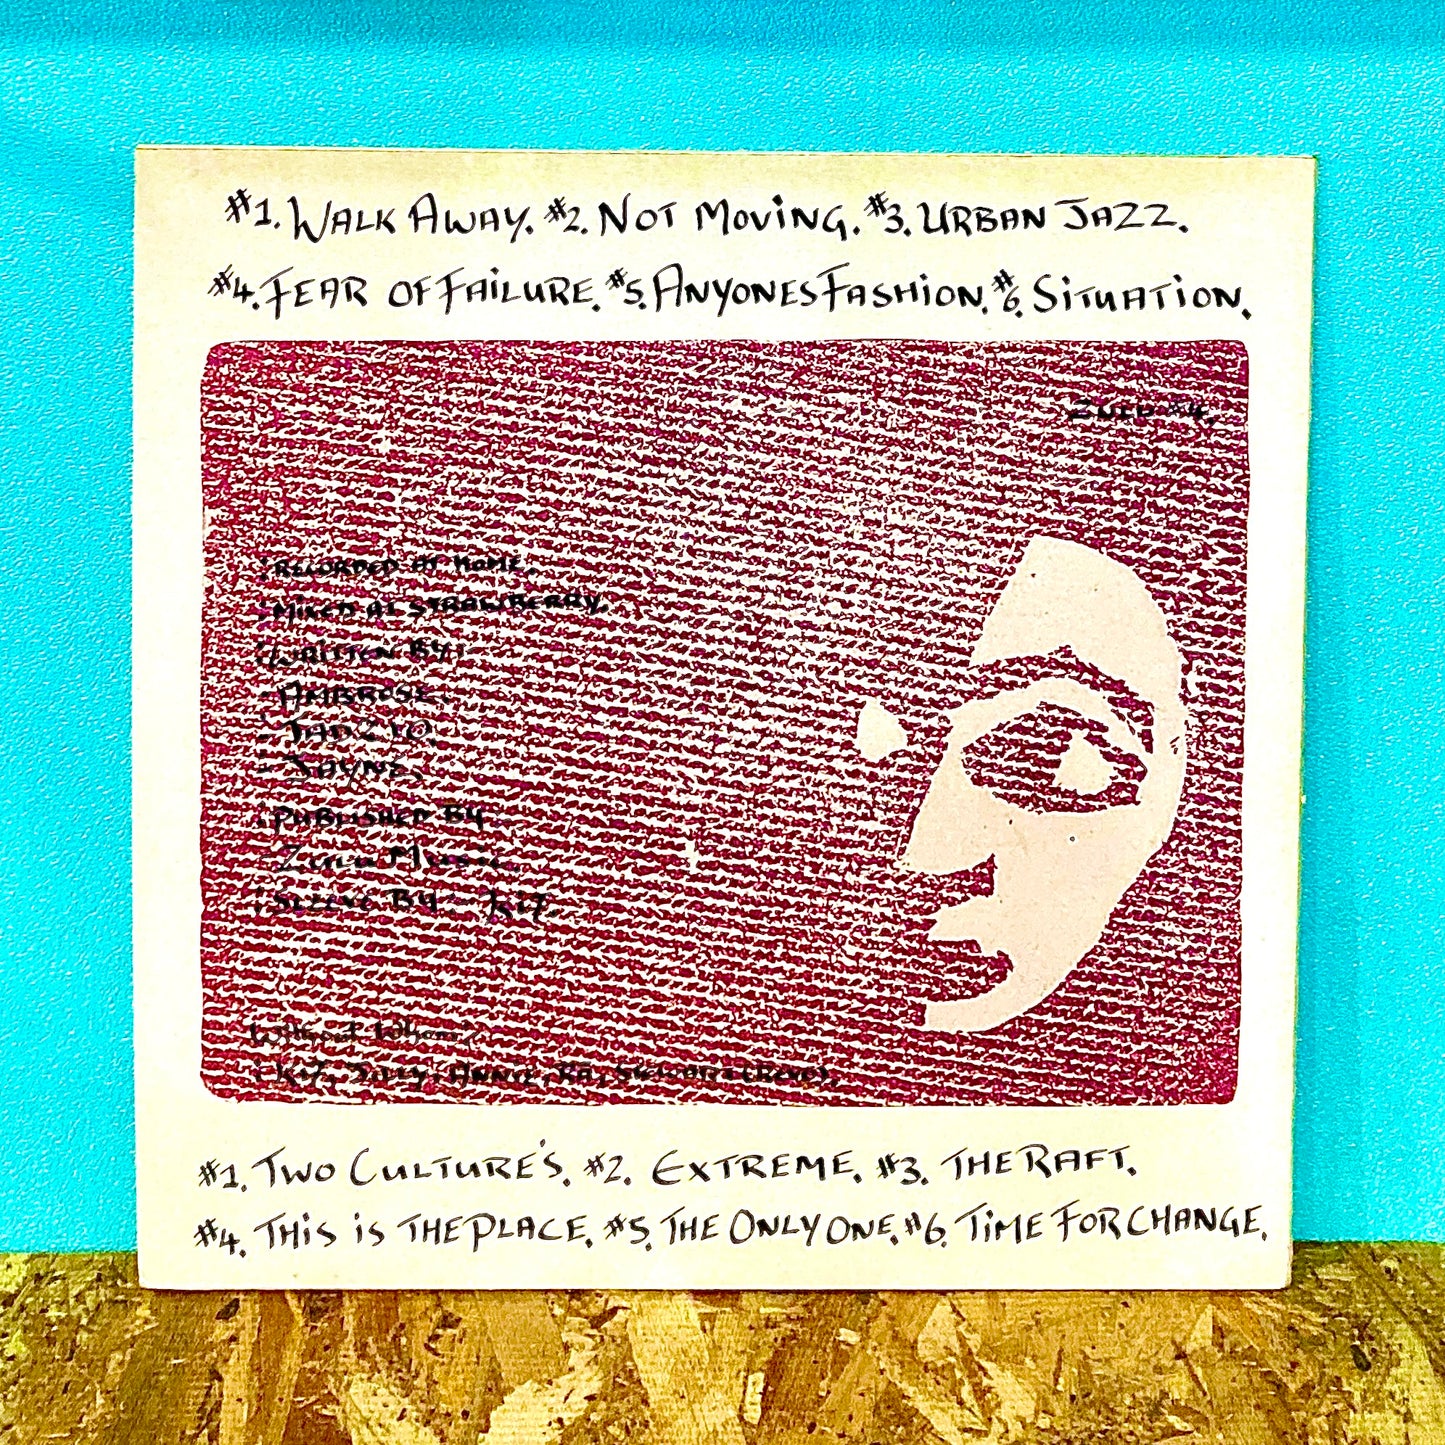 #1. WALK AWAY. #2. NOT MOVING. #3. URBAN JAZZ.
#4. FEAR OF FAILURE. #5. ANYONES FASHION. #6. SITUATION.
ZULU #4.
: RECORDED AT HOME.
: MIXED AT STRAWBERRY.
: WRITTEN BY:
- AMBROSE.
- TADZIO.
- JAYNE,
: PUBLISHED BY
- ZULU MUSIC
: SLEEVE BY: KIF.
Without Whom:
: KIF, JILLY, ANNIE, RA, STEWART (REVO).
#1. TWO CULTURE'S. #2. EXTREME. #3. THE RAFT.
#4. THIS IS THE PLACE. #5. THE ONLY ONE. #6. TIME FOR CHANGE.